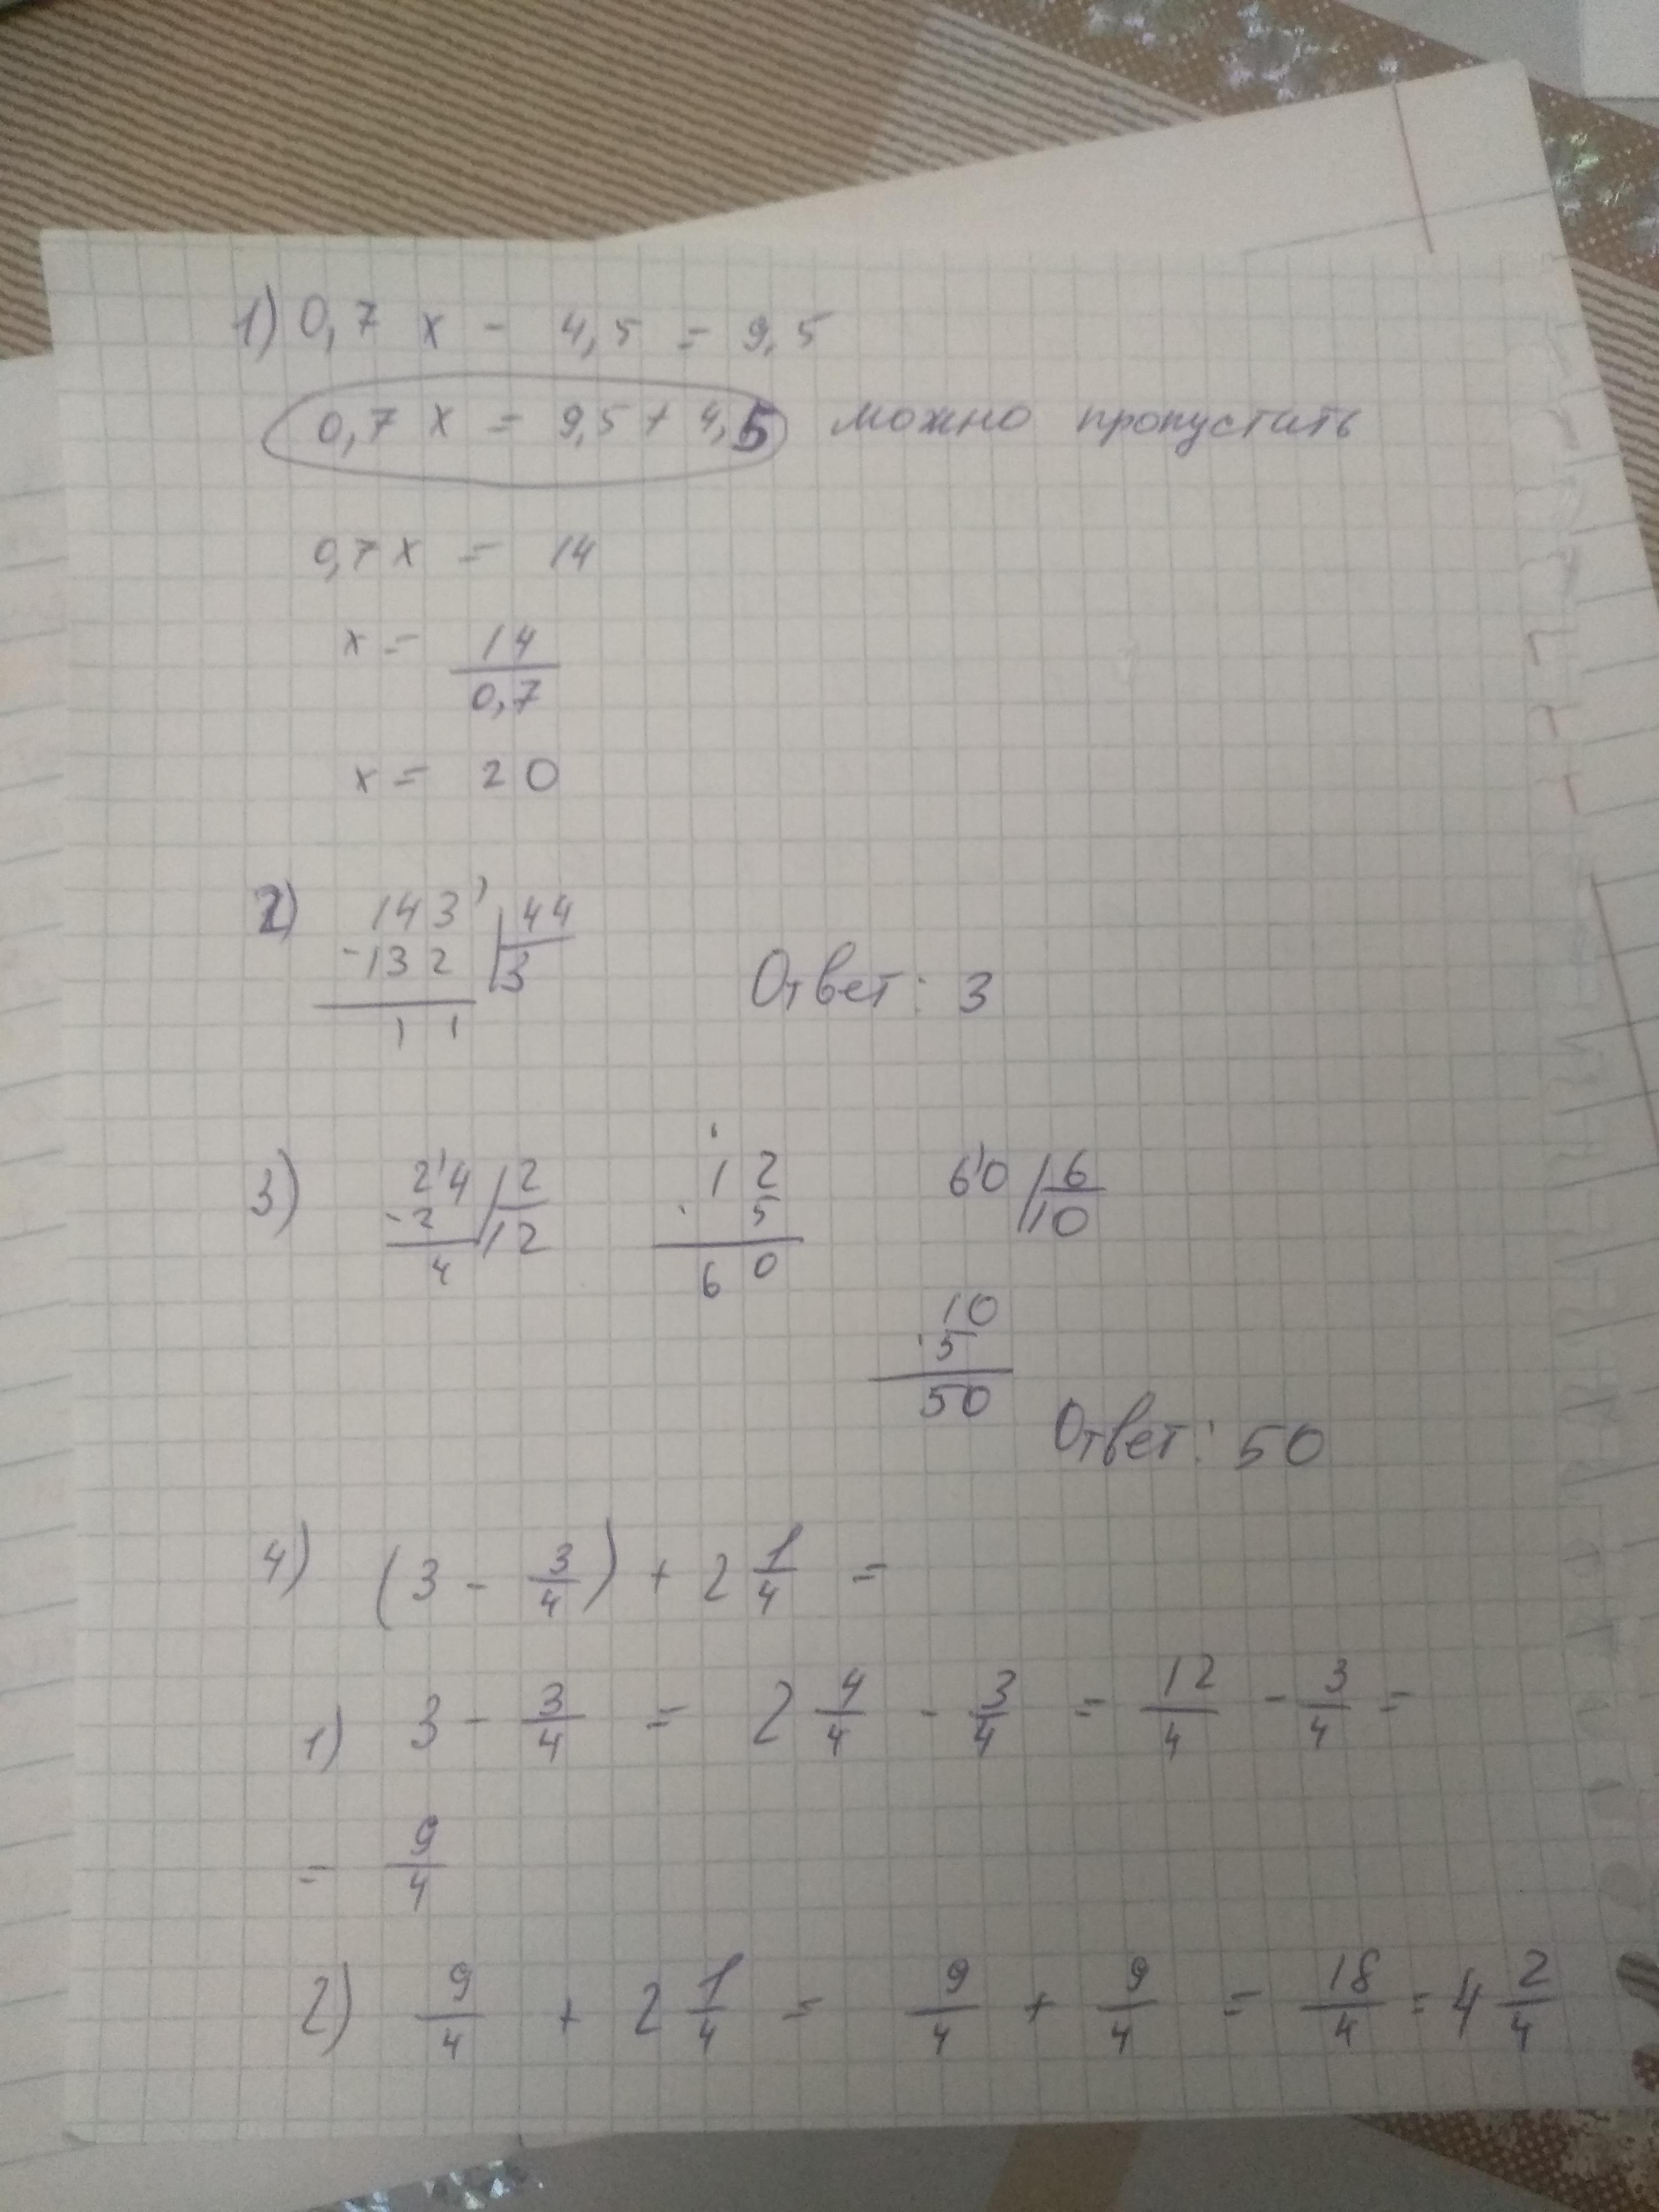 1) 0,7 x - 4,5 = 9,5
0,7 x = 9,5 + 4,5 можно пропустать
0,7 x = 14
x = 14/0,7
x = 20
2) 143 | 44
-132 | 3
11
Ответ: 3
3) 24 | 2
-2 | 12
4
12
· 5
60
60 | 6
10
10
· 5
50
Ответ: 50
4) (3 - 3/4) + 2 1/4 =
1) 3 - 3/4 = 2 4/4 - 3/4 = 12/4 - 3/4 =
= 9/4
2) 9/4 + 2 1/4 = 9/4 + 9/4 = 18/4 = 4 2/4